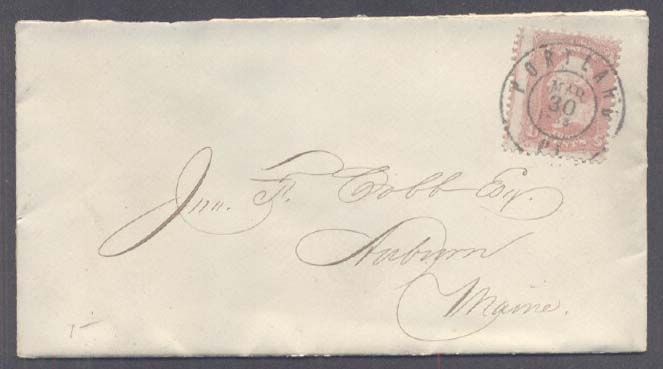 PORTLAND
MAR
30
Jno. F. Cobb Esq.
Auburn
Maine.